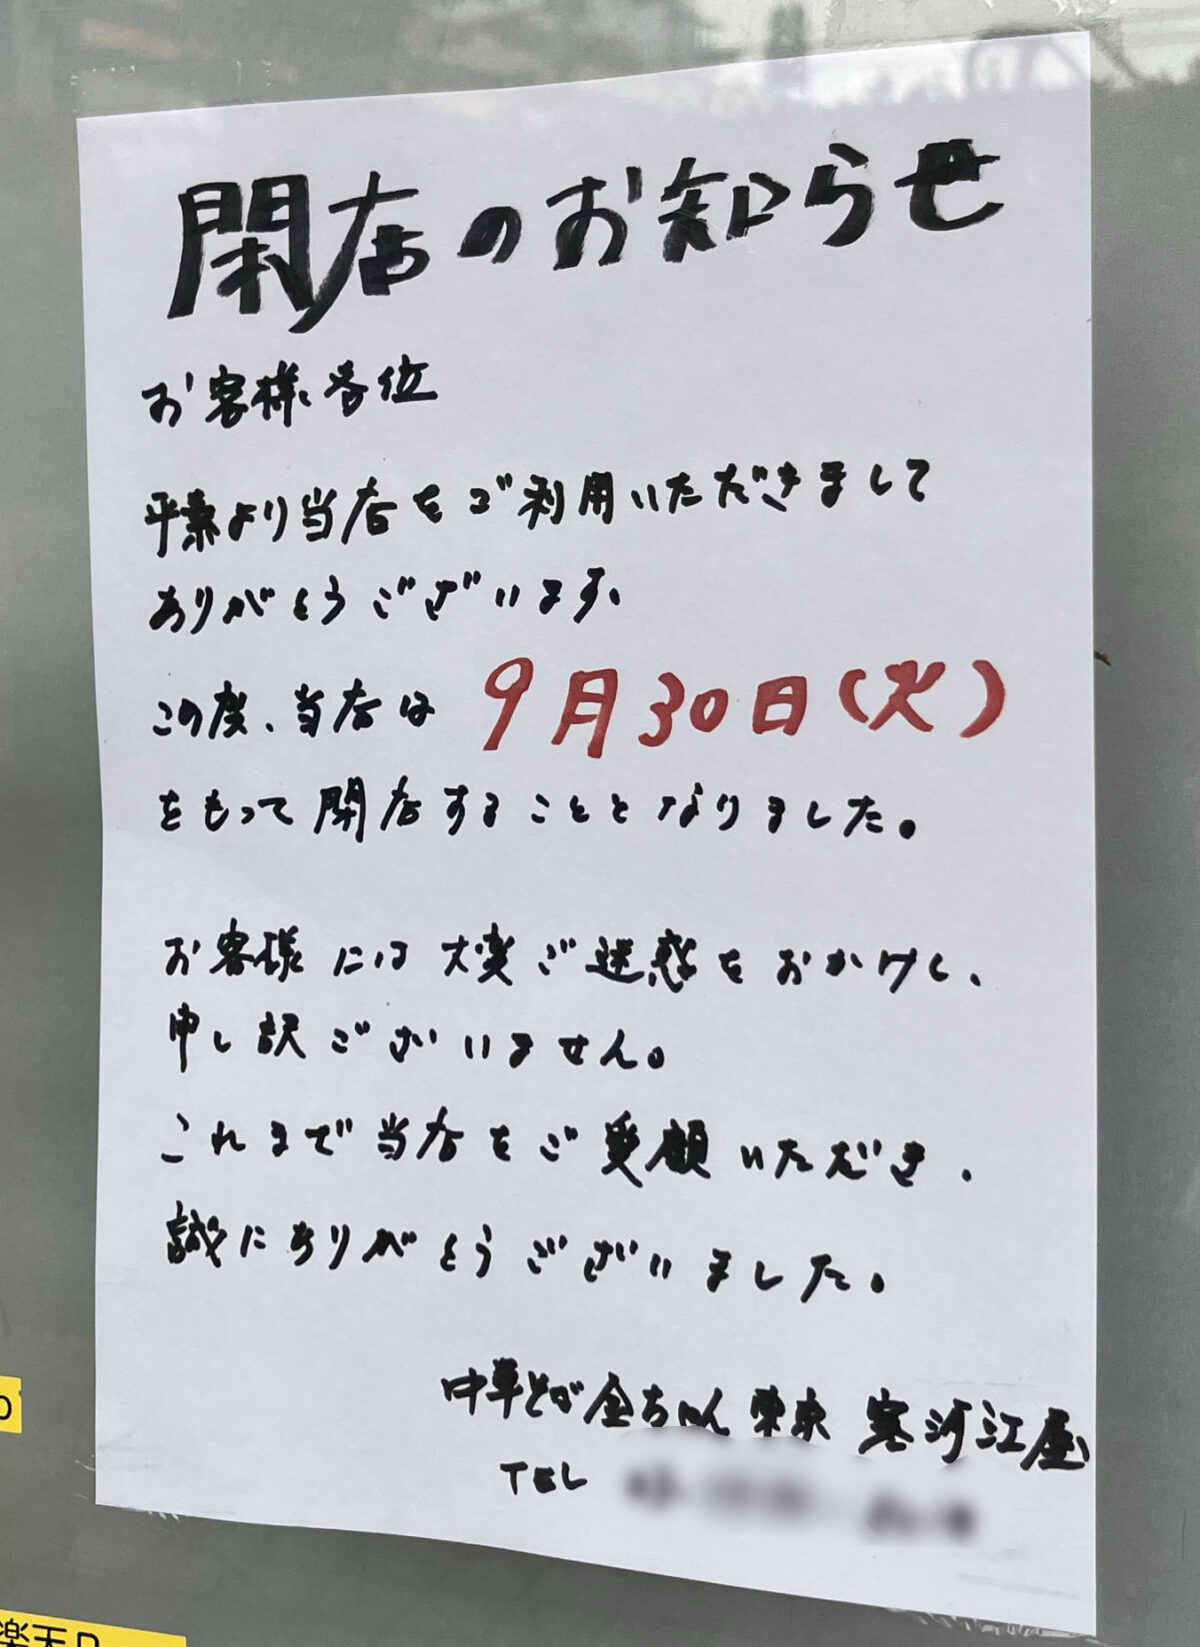 閉店のお知らせ
お客様各位
平素より当店をご利用いただきまして
ありがとうございます、
この度、当店は 9月30日(火)
をもって閉店することとなりました。
お客様には大変ご迷惑をおかけし、
申し訳ございません。
これまで当店をご愛顧いただき、
誠にありがとうございました。
中華そば金ちゃん 東京 寒河江屋
TEL
楽天P